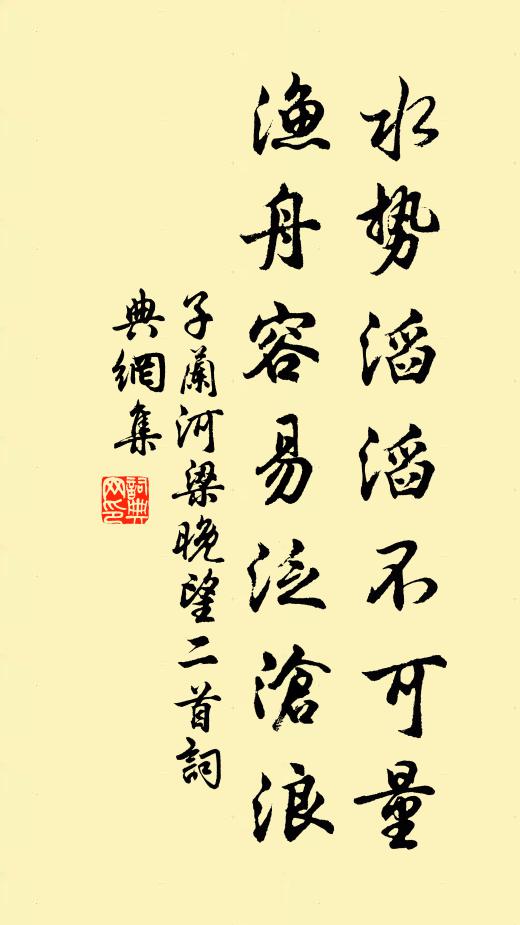 水势滔滔不可量
渔舟容易泛滄浪
子蘭河梁晚望二首詞
典網集
詞典
网印